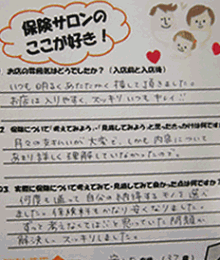 保険サロンの
ここが好き！
お店の雰囲気はどうでしたか？（入店前と入店後）
いつも明るくあたたかく接して頂きました。
お店は入りやすく、スッキリいつもキレイ♡
2 保険について「考えてみよう」・「見直してみよう」と思ったきっかけは何ですか？
月々の支払いが大変で、しかも内容について
あまり詳しく理解していなかったので。
03. 実際に保険について考えてみて・見直してみて良かった点は何ですか？
何度も通って自分の納得するモノを選べ
ました。保険料もかなり安くなりました。
ずっと考えなくては…と思っていた問題が
解決し、スッキリしました。